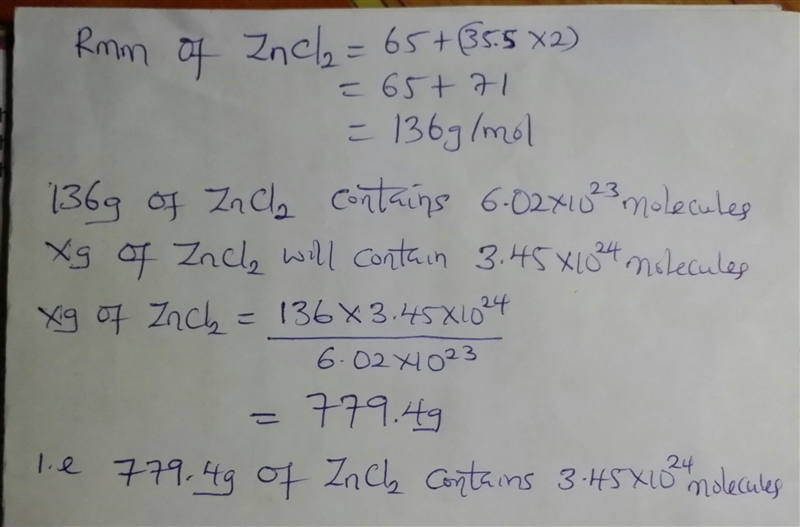 Rmm of ZnCl₂ = 65 + (35.5 × 2)
= 65 + 71
= 136g/mol
136g of ZnCl₂ contains 6.02×10²³ molecules
xg of ZnCl₂ will contain 3.45×10²⁴ molecules
xg of ZnCl₂ = 136 × 3.45×10²⁴
6.02×10²³
= 779.4g
I.e 779.4g of ZnCl₂ contains 3.45×10²⁴ molecules